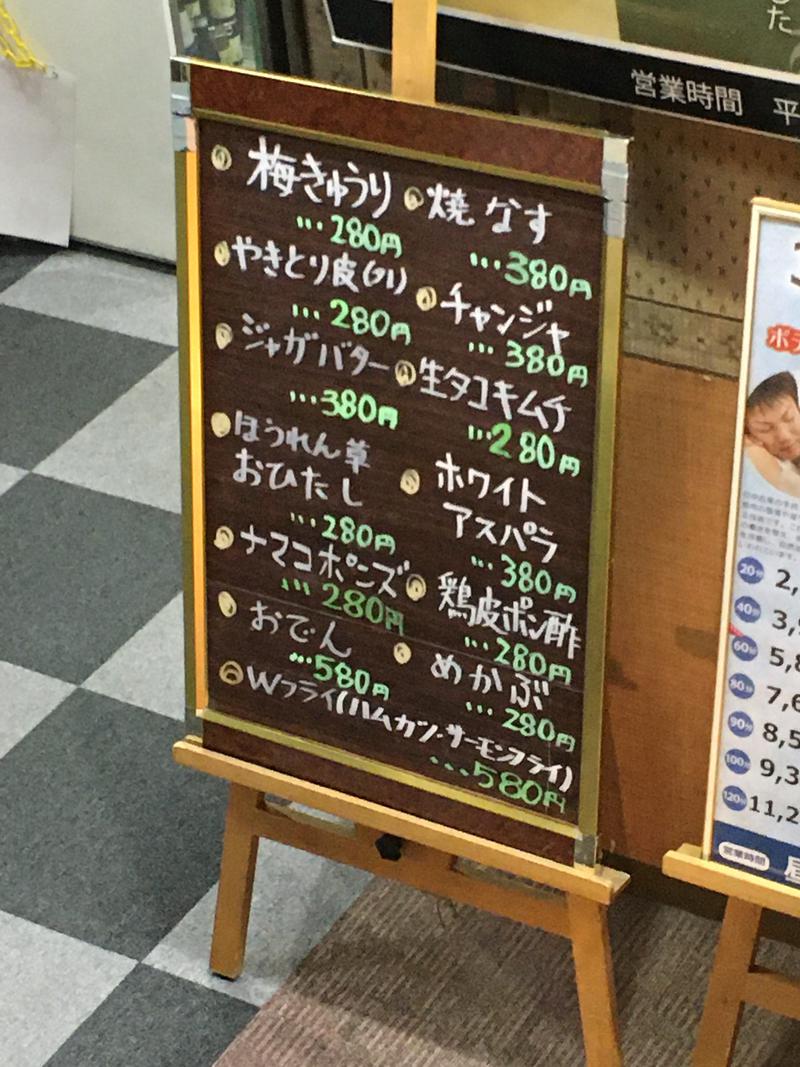 した
営業時間 平
梅きゅうり
…280円
やきとり皮(タレ)
…280円
ジャガバター
…380円
ほうれん草
おひたし
…280円
ナマコポンズ
…280円
おでん
…580円
焼なす
…380円
チャンジャ
…380円
生タコキムチ
…280円
ホワイト
アスパラ
…380円
鶏皮ポン酢
…280円
めかぶ
…280円
Wフライ(ハムカツ・サーモンフライ)
…580円
20分 2,
40分 3,
60分 5,8
80分 7,6
90分 8,5
100分 9,3
120分 11,2
営業時間